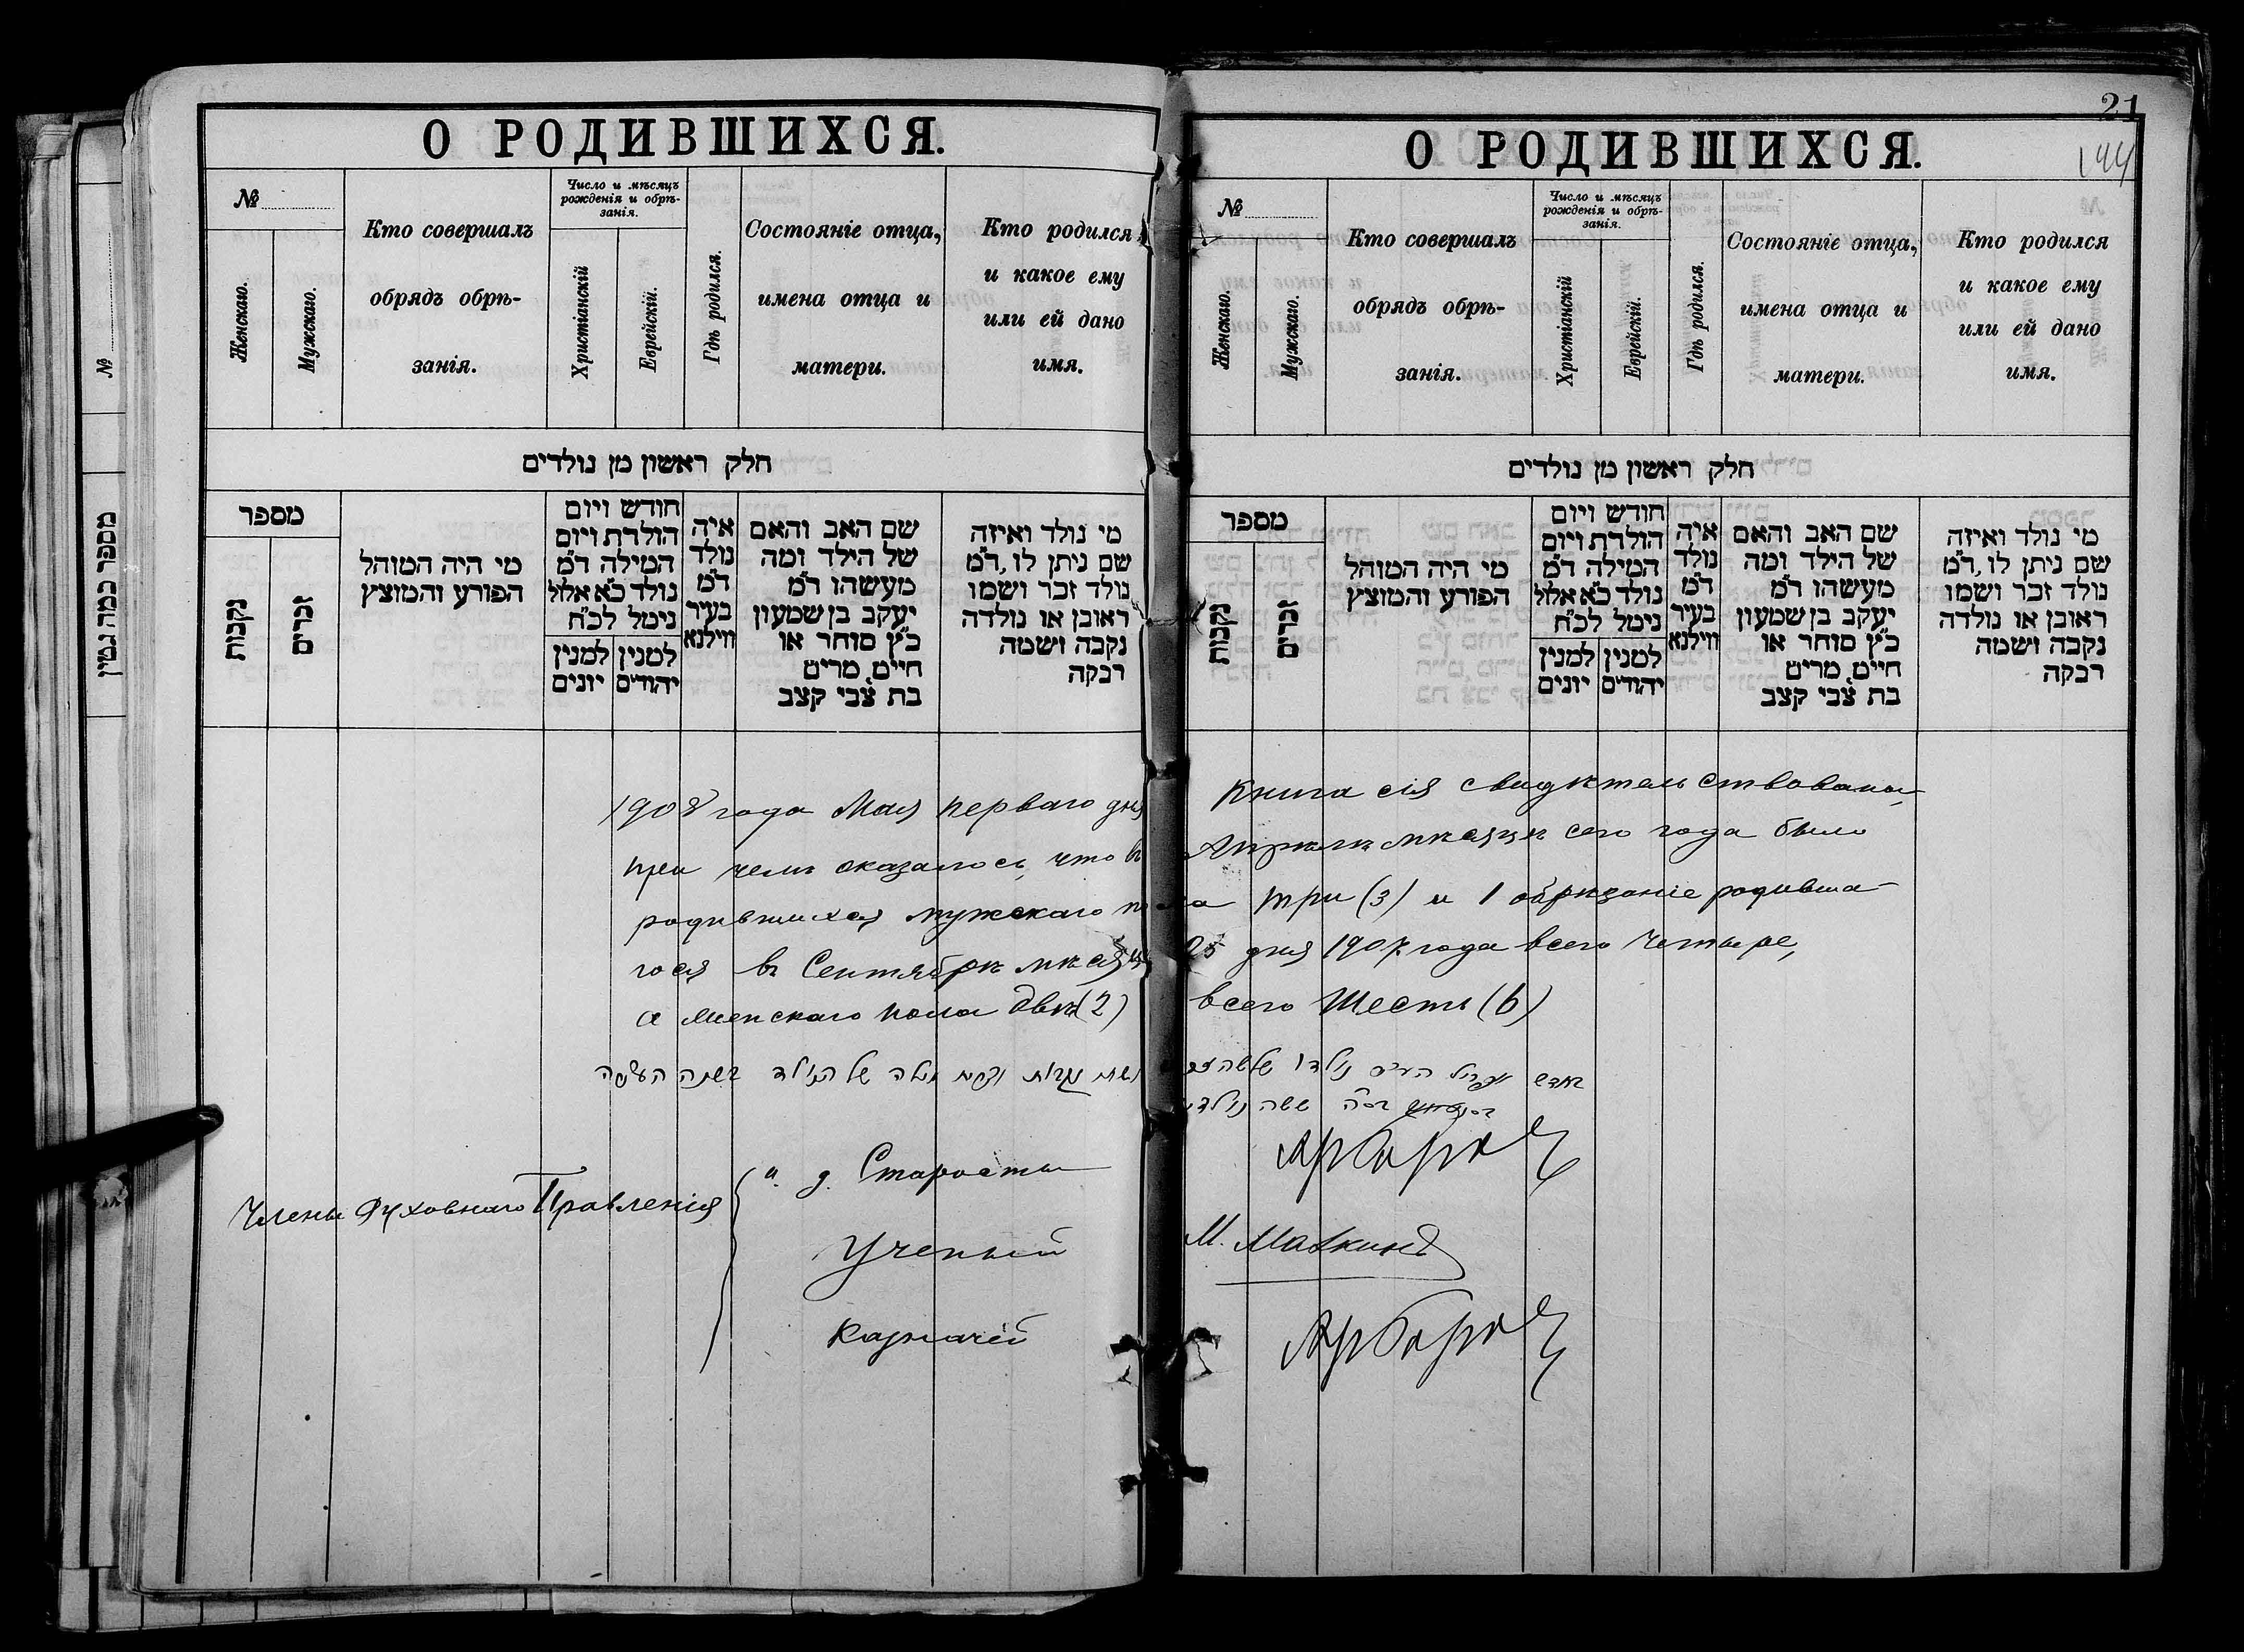 О РОДИВШИХСЯ.
№
Женскаго.
Мужскаго.
Кто совершалъ
обрядъ обрѣ-
занія.
Число и мѣсяцъ
рожденія и обрѣ-
занія.
Христіанскій
Еврейскій.
Гдѣ родился.
Состояніе отца,
имена отца и
матери.
Кто родился
и какое ему
или ей дано
имя.
חלק ראשון מן נולדים
מספר
נקבות
זכרים
מי היה המוהל
הפורע והמוצץ
חודש ויום
הולדת ויום
המילה ד״מ
נולד כ״א אלול
נימל לכ״ח
למנין
יהודים
למנין
יונים
איה
נולד
ד״מ
בעיר
ווילנא
שם האב והאם
של הילד ומה
מעשהו ד״מ
יעקב בן שמעון
כ״ץ סוחר או
חייט מרים
בת צבי קצב
מי נולד ואיזה
שם ניתן לו, ד״מ
נולד זכר ושמו
ראובן או נולדה
נקבה ושמה
רבקה
№
מספר כמה גטין
21
144
О РОДИВШИХСЯ.
№
Женскаго.
Мужскаго.
Кто совершалъ
обрядъ обрѣ-
занія.
Число и мѣсяцъ
рожденія и обрѣ-
занія.
Христіанскій
Еврейскій.
Гдѣ родился.
Состояніе отца,
имена отца и
матери.
Кто родился
и какое ему
или ей дано
имя.
חלק ראשון מן נולדים
מספר
נקבות
זכרים
מי היה המוהל
הפורע והמוצץ
חודש ויום
הולדת ויום
המילה ד״מ
נולד כ״א אלול
נימל לכ״ח
למנין
יהודים
למנין
יונים
איה
נולד
ד״מ
בעיר
ווילנא
שם האב והאם
של הילד ומה
מעשהו ד״מ
יעקב בן שמעון
כ״ץ סוחר או
חייט מרים
בת צבי קצב
מי נולד ואיזה
שם ניתן לו, ד״מ
נולד זכר ושמו
ראובן או נולדה
נקבה ושמה
רבקה
1908 года Мая перваго дня Книга сія свидѣтельствована,
при чемъ оказалось, что въ Апрѣлѣ мѣсяцѣ сего года было
родившихся мужскаго пола три (3) и 1 обрѣзаніе родивша-
гося въ Сентябрѣ мѣсяцѣ 25 дня 1907 года всего четыре,
а женскаго пола двѣ (2) всего шесть (6)
נולדו
ששה
Члены Духовнаго Правленія
и. д. Старосты
Ученый М. Малкинъ
Казначей